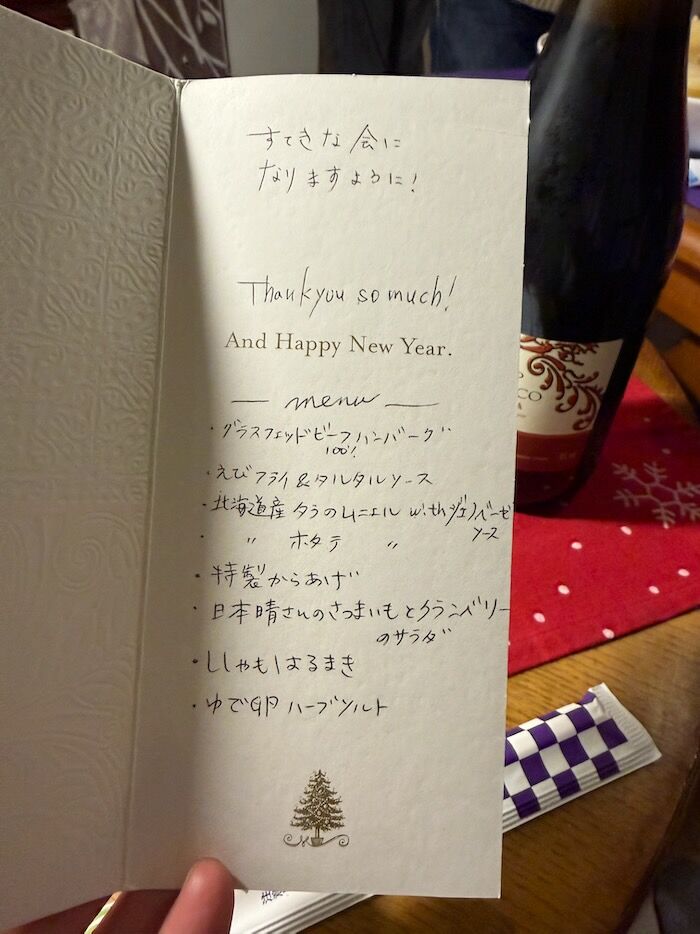 すてきな会に
なりますように!
Thankyou so much!
And Happy New Year.
— menu —
・グラスフェッドビーフハンバーグ
100%
・えびフライ&タルタルソース
・北海道産タラのムニエル withジェノベーゼ
ソース
・ 〃 ホタテ 〃
・特製からあげ
・日本晴さんのさつまいもとクランベリー
のサラダ
・ししゃもはるまき
・ゆで卵ハーブソルト
CO